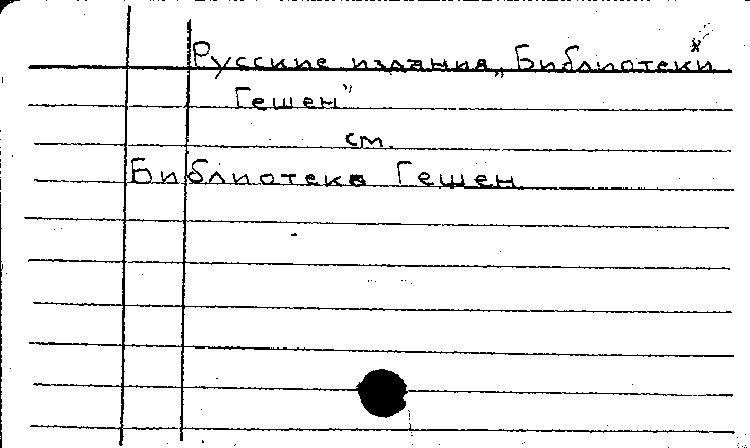 Русские издания „Библиотеки
Гешен"
см.
Библиотека Гешен.